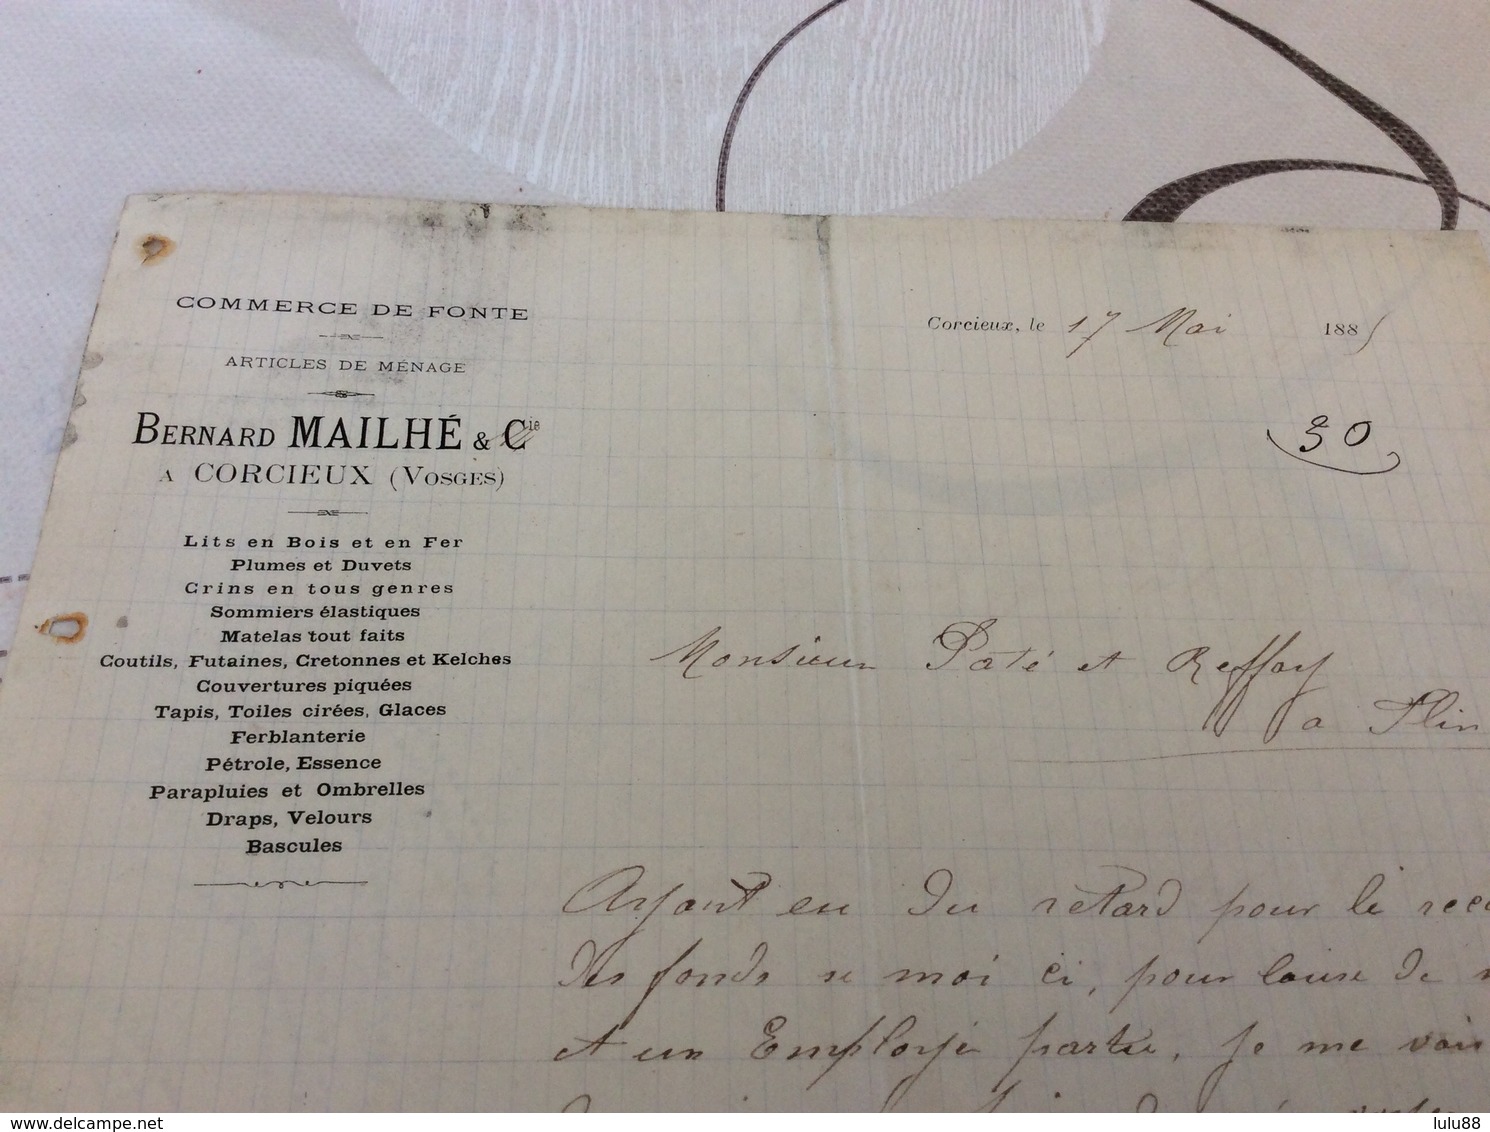 COMMERCE DE FONTE
ARTICLES DE MÉNAGE
BERNARD MAILHÉ & Cie
A CORCIEUX (VOSGES)
Lits en Bois et en Fer
Plumes et Duvets
Crins en tous genres
Sommiers élastiques
Matelas tout faits
Coutils, Futaines, Cretonnes et Kelches
Couvertures piquées
Tapis, Toiles cirées, Glaces
Ferblanterie
Pétrole, Essence
Parapluies et Ombrelles
Draps, Velours
Bascules
Corcieux, le 17 Mai 188
30
Monsieur Paté et Reffay
a Plin
Ayant eu du retard pour le
des fonds ce moi ci, pour cause de
et un Employé partie, je me vois
delcampe.net
lulu88